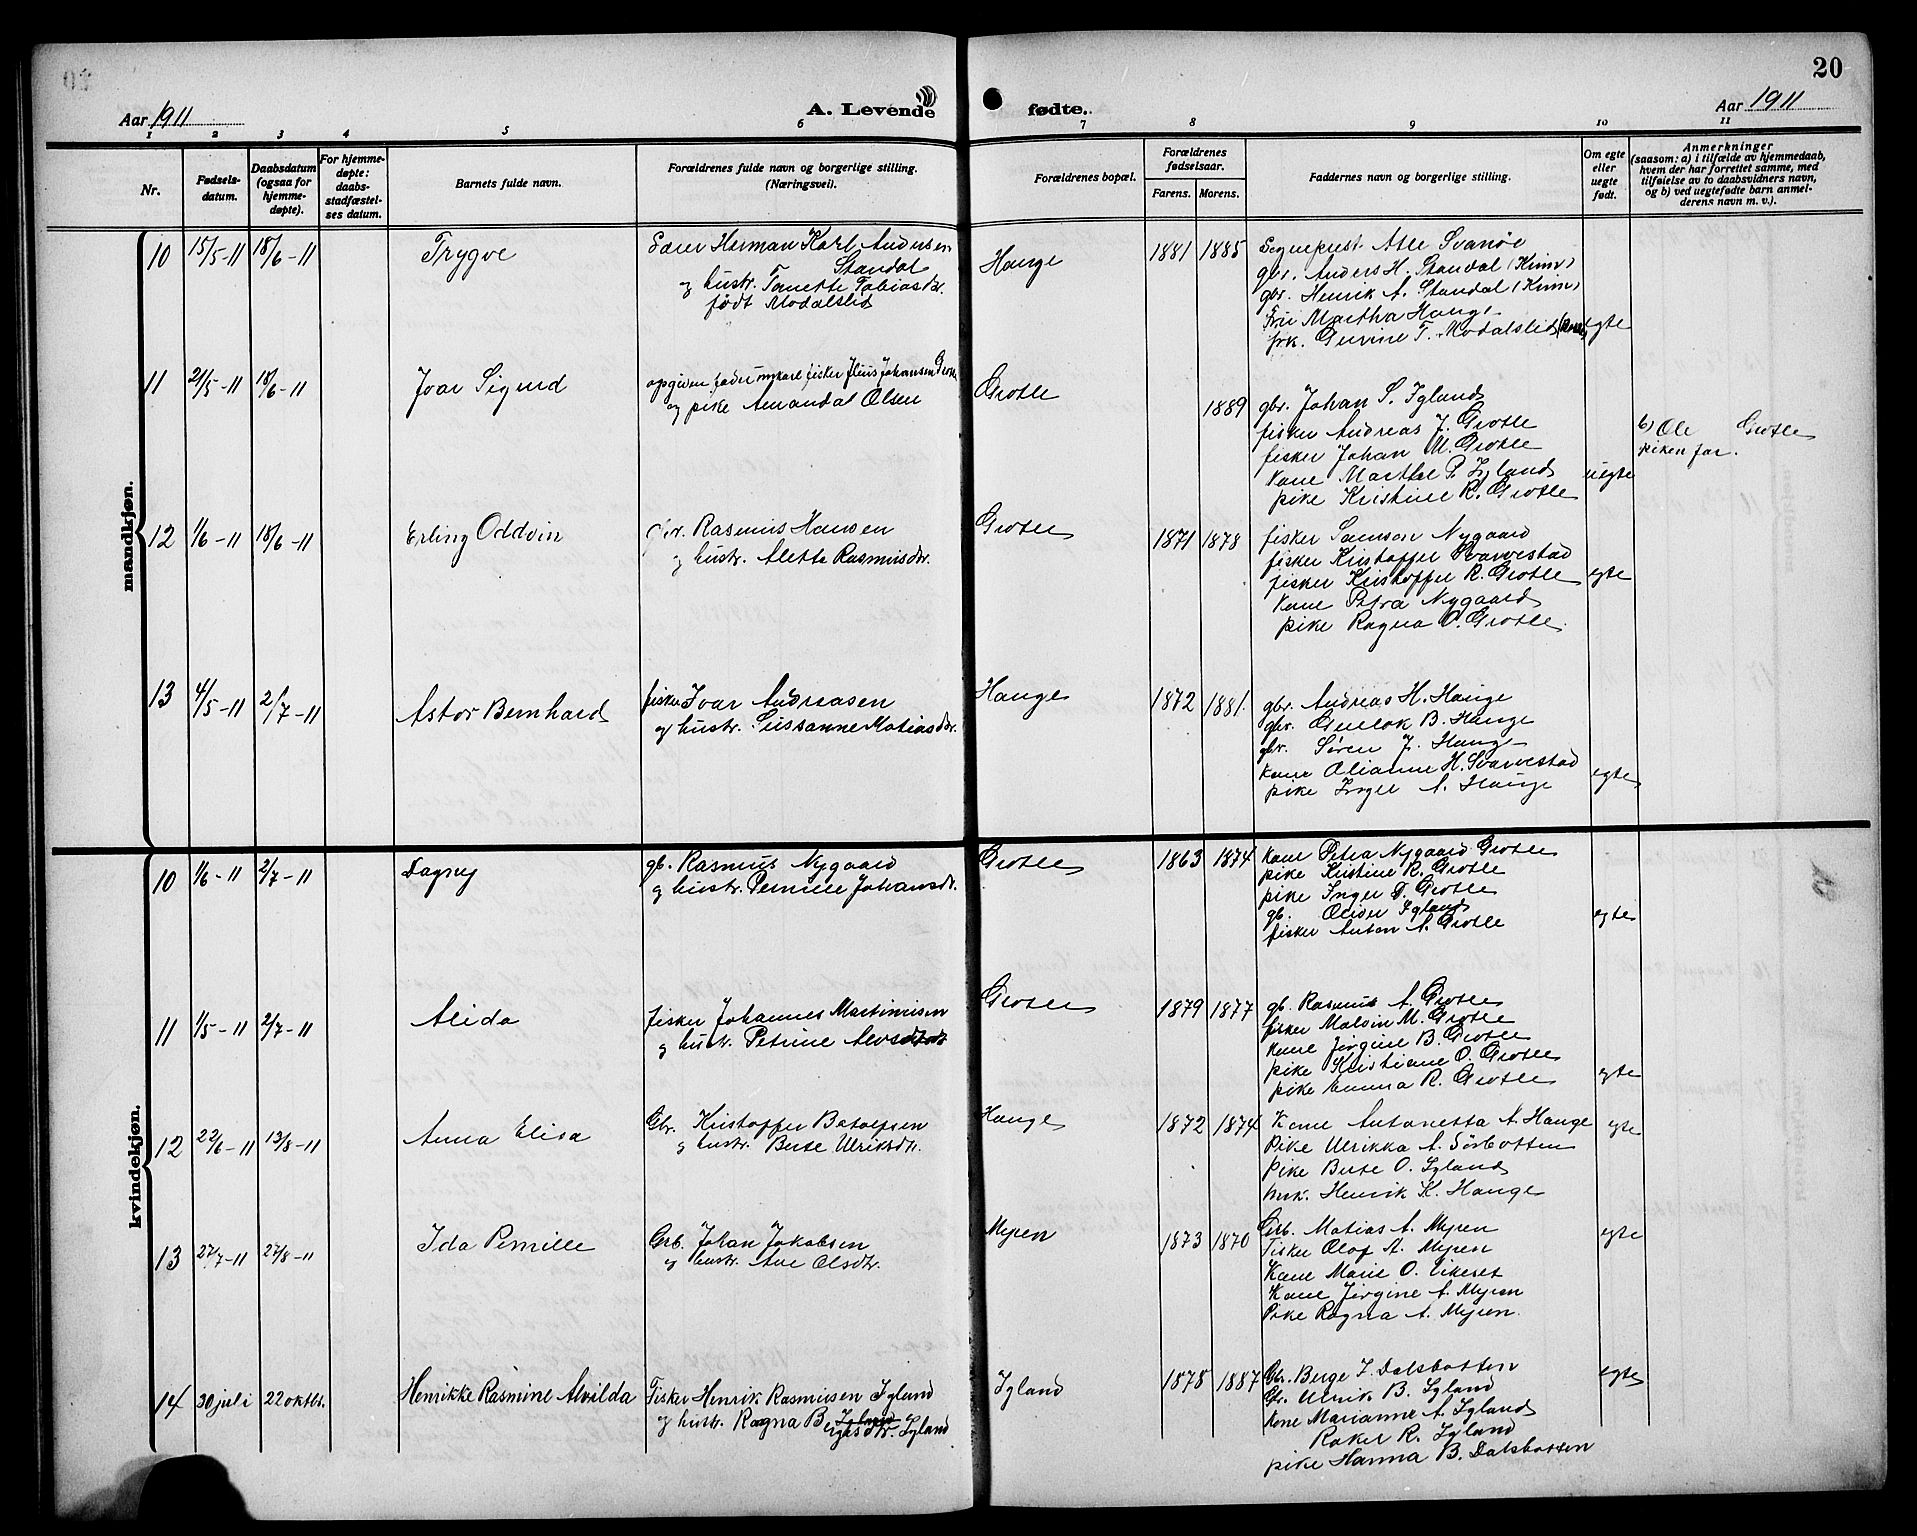 20
Aar 1911
A. Levende fødte.
Aar 1911
1 2 3 4 5 6 7 8 9 10 11
Nr.
Fødsels-
datum.
Daabsdatum
(ogsaa for
hjemme-
døpte).
For hjemme-
døpte:
daabs-
stadfæstel-
ses datum.
Barnets fulde navn.
Forældrenes fulde navn og borgerlige stilling.
(Næringsveil.
Forældrenes bopæl.
Forældrenes
fødselsaar.
Farens. Morens.
Faddernes navn og borgerlige stilling.
Om egte
eller
uegte
født.
Anmerkninger
(saasom: a) i tilfælde av hjemmedaab,
hvem der har forrettet samme, med
tilføielse av to daabsvidners navn,
og b) ved uegtefødte barn anmel-
derens navn m. v.).
mandkjøn.
10 15/5-11 18/6-11 Trygve
Lærer Herman Karl Andersen
Standal
og hustr. Tanette Tobiasdr.
født Modalslid
Hauge 1881 1885
Sogneprest Atle Svanøe
gbr. Anders H. Standal (Kinn)
gbr. Henrik A. Standal (Kinn)
Fru Martha Hauge
frk. Gurine T. Modalslid egte
11 21/5-11 18/6-11 Ivar Sigurd
opgiven fader ungkarl fisker Julius Johansen Grotle
og pike Amandal Olsen
Grotle 1889
gbr. Johan S. Igland
fisker Andreas J. Grotle
fisker Johan M. Grotle
Kone Marthe P. Igland uegte
pike Kristine R. Grotle
b) Ole Grotle
piken far.
12 1/6-11 18/6-11 Erling Oddvin
gbr. Rasmus Hansen
og hustr. Alette Rasmusdr.
Grotle 1871 1878
fisker Samson Nygaard
fisker Kristoffer Svarvestad
fisker Kristoffer R. Grotle egte
Kone Petra Nygaard
pike Ragna O. Grotle
13 4/5-11 2/7-11 Astor Bernhard
fisker Ivar Andreasen
og hustr. Sussanne Matiasdr.
Hauge 1872 1881
gbr. Andreas H. Hauge
gbr. Gullak B. Hauge
gbr. Søren J. Hauge
Kone Olianne H. Svarvestad egte
pike Inger A. Hauge
kvindekjøn.
10 1/6-11 2/7-11 Dagny
gb. Rasmus Nygaard
og hustr. Pernille Johansdr.
Grotle 1863 1874
Kone Petra Nygaard Grotle
pike Kristine R. Grotle
pike Inger D. Grotle
gb. Oliver Igland egte
fisker Anton A. Grotle
11 1/5-11 2/7-11 Alida
fisker Johannes Martinusen
og hustr. Petrine
Grotle 1879 1877
gb. Rasmus A. Grotle
fisker Malvin M. Grotle
Kone Jørgine B. Grotle
pike Kristiane O. Grotle
pike Emma R. Grotle egte
12 22/6-11 13/8-11 Anna Elisa
Gbr. Kristoffer Botolfsen
og hustr. Berte Ulriksdr.
Hauge 1872 1874
Kone Antonetta A. Hauge egte
Pike Ulrikka A. Sørbotten
Pike Berte O. Igland
Henrik K. Hauge
13 27/7-11 27/8-11 Ida Pernille
Grb. Johan Jakobsen
og hustr. Ane Olsdtr.
Myren 1873 1870
Grb. Matias A. Myren egte
Fisker Olaf A. Myren
Kone Marie O. Eikeset
Kone Jørgine A. Myren
Pike Ragna A. Myren.
14 30 juli 22 oktbr. Henrikke Rasmine Alvilda
Fisker Henrik Rasmusen Igland
og hustr. Ragna Bergesdtr. Igland
Igland 1878 1887
Gbr. Berge J. Dalsbotten egte
Gbr. Ulrik B. Igland
Kone Marianne A. Igland
R. Igland
pike Hanna B. Dalsbotten